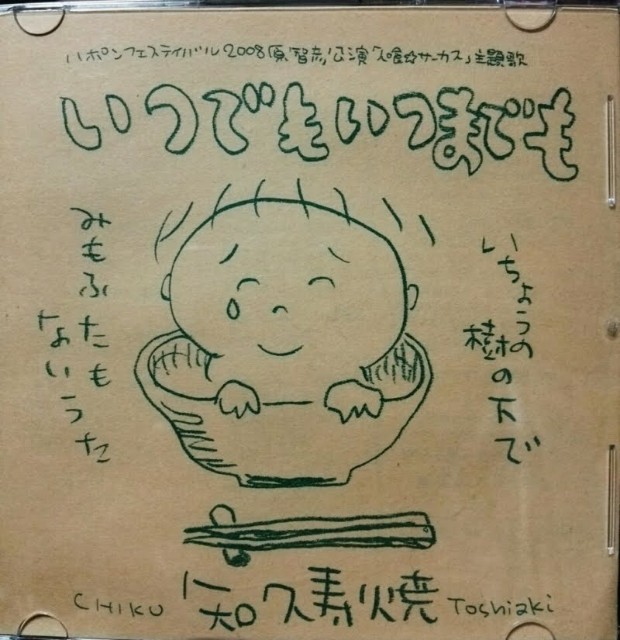 ハポンフェスティバル2008原智彦公演「人喰☆サーカス」主題歌
いつでもいつまでも
いちょうの
樹の下で
みもふたも
ないうた
CHIKU 知久寿焼 Toshiaki